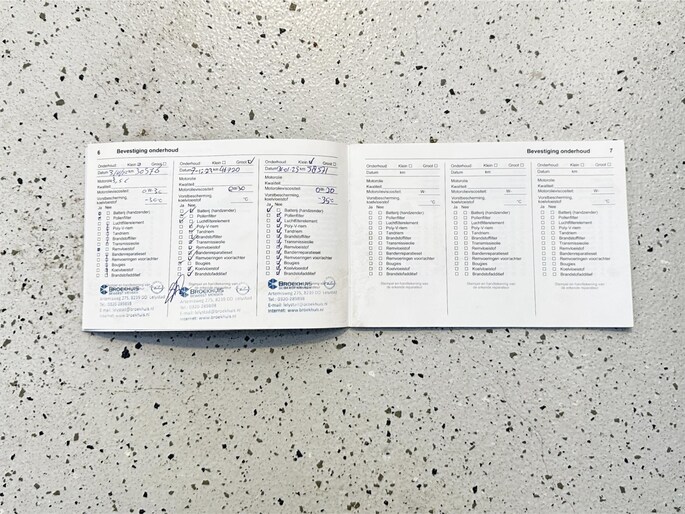 6 Bevestiging onderhoud
Onderhoud: Klein Groot
Datum km 30576
Motorolie
Kwaliteit
Motorolieviscositeit 0W30
Vorstbescherming,
koelvloeistof °C
Ja Nee
Batterij (handzender)
Pollenfilter
Luchtfilterelement
Poly-V-riem
Tandriem
Brandstoffilter
Transmissieolie
Remvloeistof
Bandenreparatieset
Remvoeringen voor/achter
Bougies
Koelvloeistof
Brandstofadditief
BROEKHUIS
Artemisweg 275, 8239 DD Lelystad
Tel.: 0320-285858
E-mail: lelystad@broekhuis.nl
Internet: www.broekhuis.nl
Onderhoud: Klein Groot
Datum km
Motorolie
Kwaliteit
Motorolieviscositeit 0W30
Vorstbescherming,
koelvloeistof °C
Ja Nee
Batterij (handzender)
Pollenfilter
Luchtfilterelement
Poly-V-riem
Tandriem
Brandstoffilter
Transmissieolie
Remvloeistof
Bandenreparatieset
Remvoeringen voor/achter
Bougies
Koelvloeistof
Brandstofadditief
BROEKHUIS
Artemisweg 275, 8239 DD Lelystad
Tel.: 0320-285858
E-mail: lelystad@broekhuis.nl
Internet: www.broekhuis.nl
Onderhoud: Klein Groot
Datum km 58571
Motorolie
Kwaliteit
Motorolieviscositeit 0W30
Vorstbescherming,
koelvloeistof -35°C
Ja Nee
Batterij (handzender)
Pollenfilter
Luchtfilterelement
Poly-V-riem
Tandriem
Brandstoffilter
Transmissieolie
Remvloeistof
Bandenreparatieset
Remvoeringen voor/achter
Bougies
Koelvloeistof
Brandstofadditief
BROEKHUIS
Artemisweg 275, 8239 DD Lelystad
Tel.: 0320-285858
E-mail: lelystad@broekhuis.nl
Internet: www.broekhuis.nl
Bevestiging onderhoud 7
Onderhoud: Klein Groot
Datum km
Motorolie
Kwaliteit
Motorolieviscositeit W-
Vorstbescherming,
koelvloeistof °C
Ja Nee
Batterij (handzender)
Pollenfilter
Luchtfilterelement
Poly-V-riem
Tandriem
Brandstoffilter
Transmissieolie
Remvloeistof
Bandenreparatieset
Remvoeringen voor/achter
Bougies
Koelvloeistof
Brandstofadditief
Stempel en handtekening van
de erkende reparateur
Onderhoud: Klein Groot
Datum km
Motorolie
Kwaliteit
Motorolieviscositeit W-
Vorstbescherming,
koelvloeistof °C
Ja Nee
Batterij (handzender)
Pollenfilter
Luchtfilterelement
Poly-V-riem
Tandriem
Brandstoffilter
Transmissieolie
Remvloeistof
Bandenreparatieset
Remvoeringen voor/achter
Bougies
Koelvloeistof
Brandstofadditief
Stempel en handtekening van
de erkende reparateur
Onderhoud: Klein Groot
Datum km
Motorolie
Kwaliteit
Motorolieviscositeit W-
Vorstbescherming,
koelvloeistof °C
Ja Nee
Batterij (handzender)
Pollenfilter
Luchtfilterelement
Poly-V-riem
Tandriem
Brandstoffilter
Transmissieolie
Remvloeistof
Bandenreparatieset
Remvoeringen voor/achter
Bougies
Koelvloeistof
Brandstofadditief
Stempel en handtekening van
de erkende reparateur